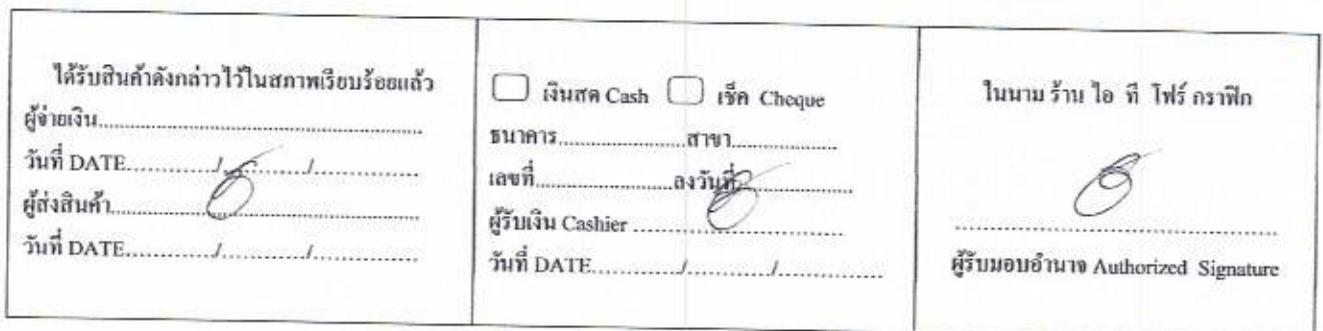 ได้รับสินค้าดังกล่าวไว้ในสภาพเรียบร้อยแล้ว
ผู้จ่ายเงิน................................................
วันที่ DATE............/............/..............
ผู้ส่งสินค้า................................................
วันที่ DATE............/............/..............
เงินสด Cash เช็ค Cheque
ธนาคาร....................สาขา................
เลขที่....................ลงวันที่................
ผู้รับเงิน Cashier ................................
วันที่ DATE............/............/..............
ในนาม ร้าน ไอ ที โฟร์ กราฟิก
................................................
ผู้รับมอบอำนาจ Authorized Signature